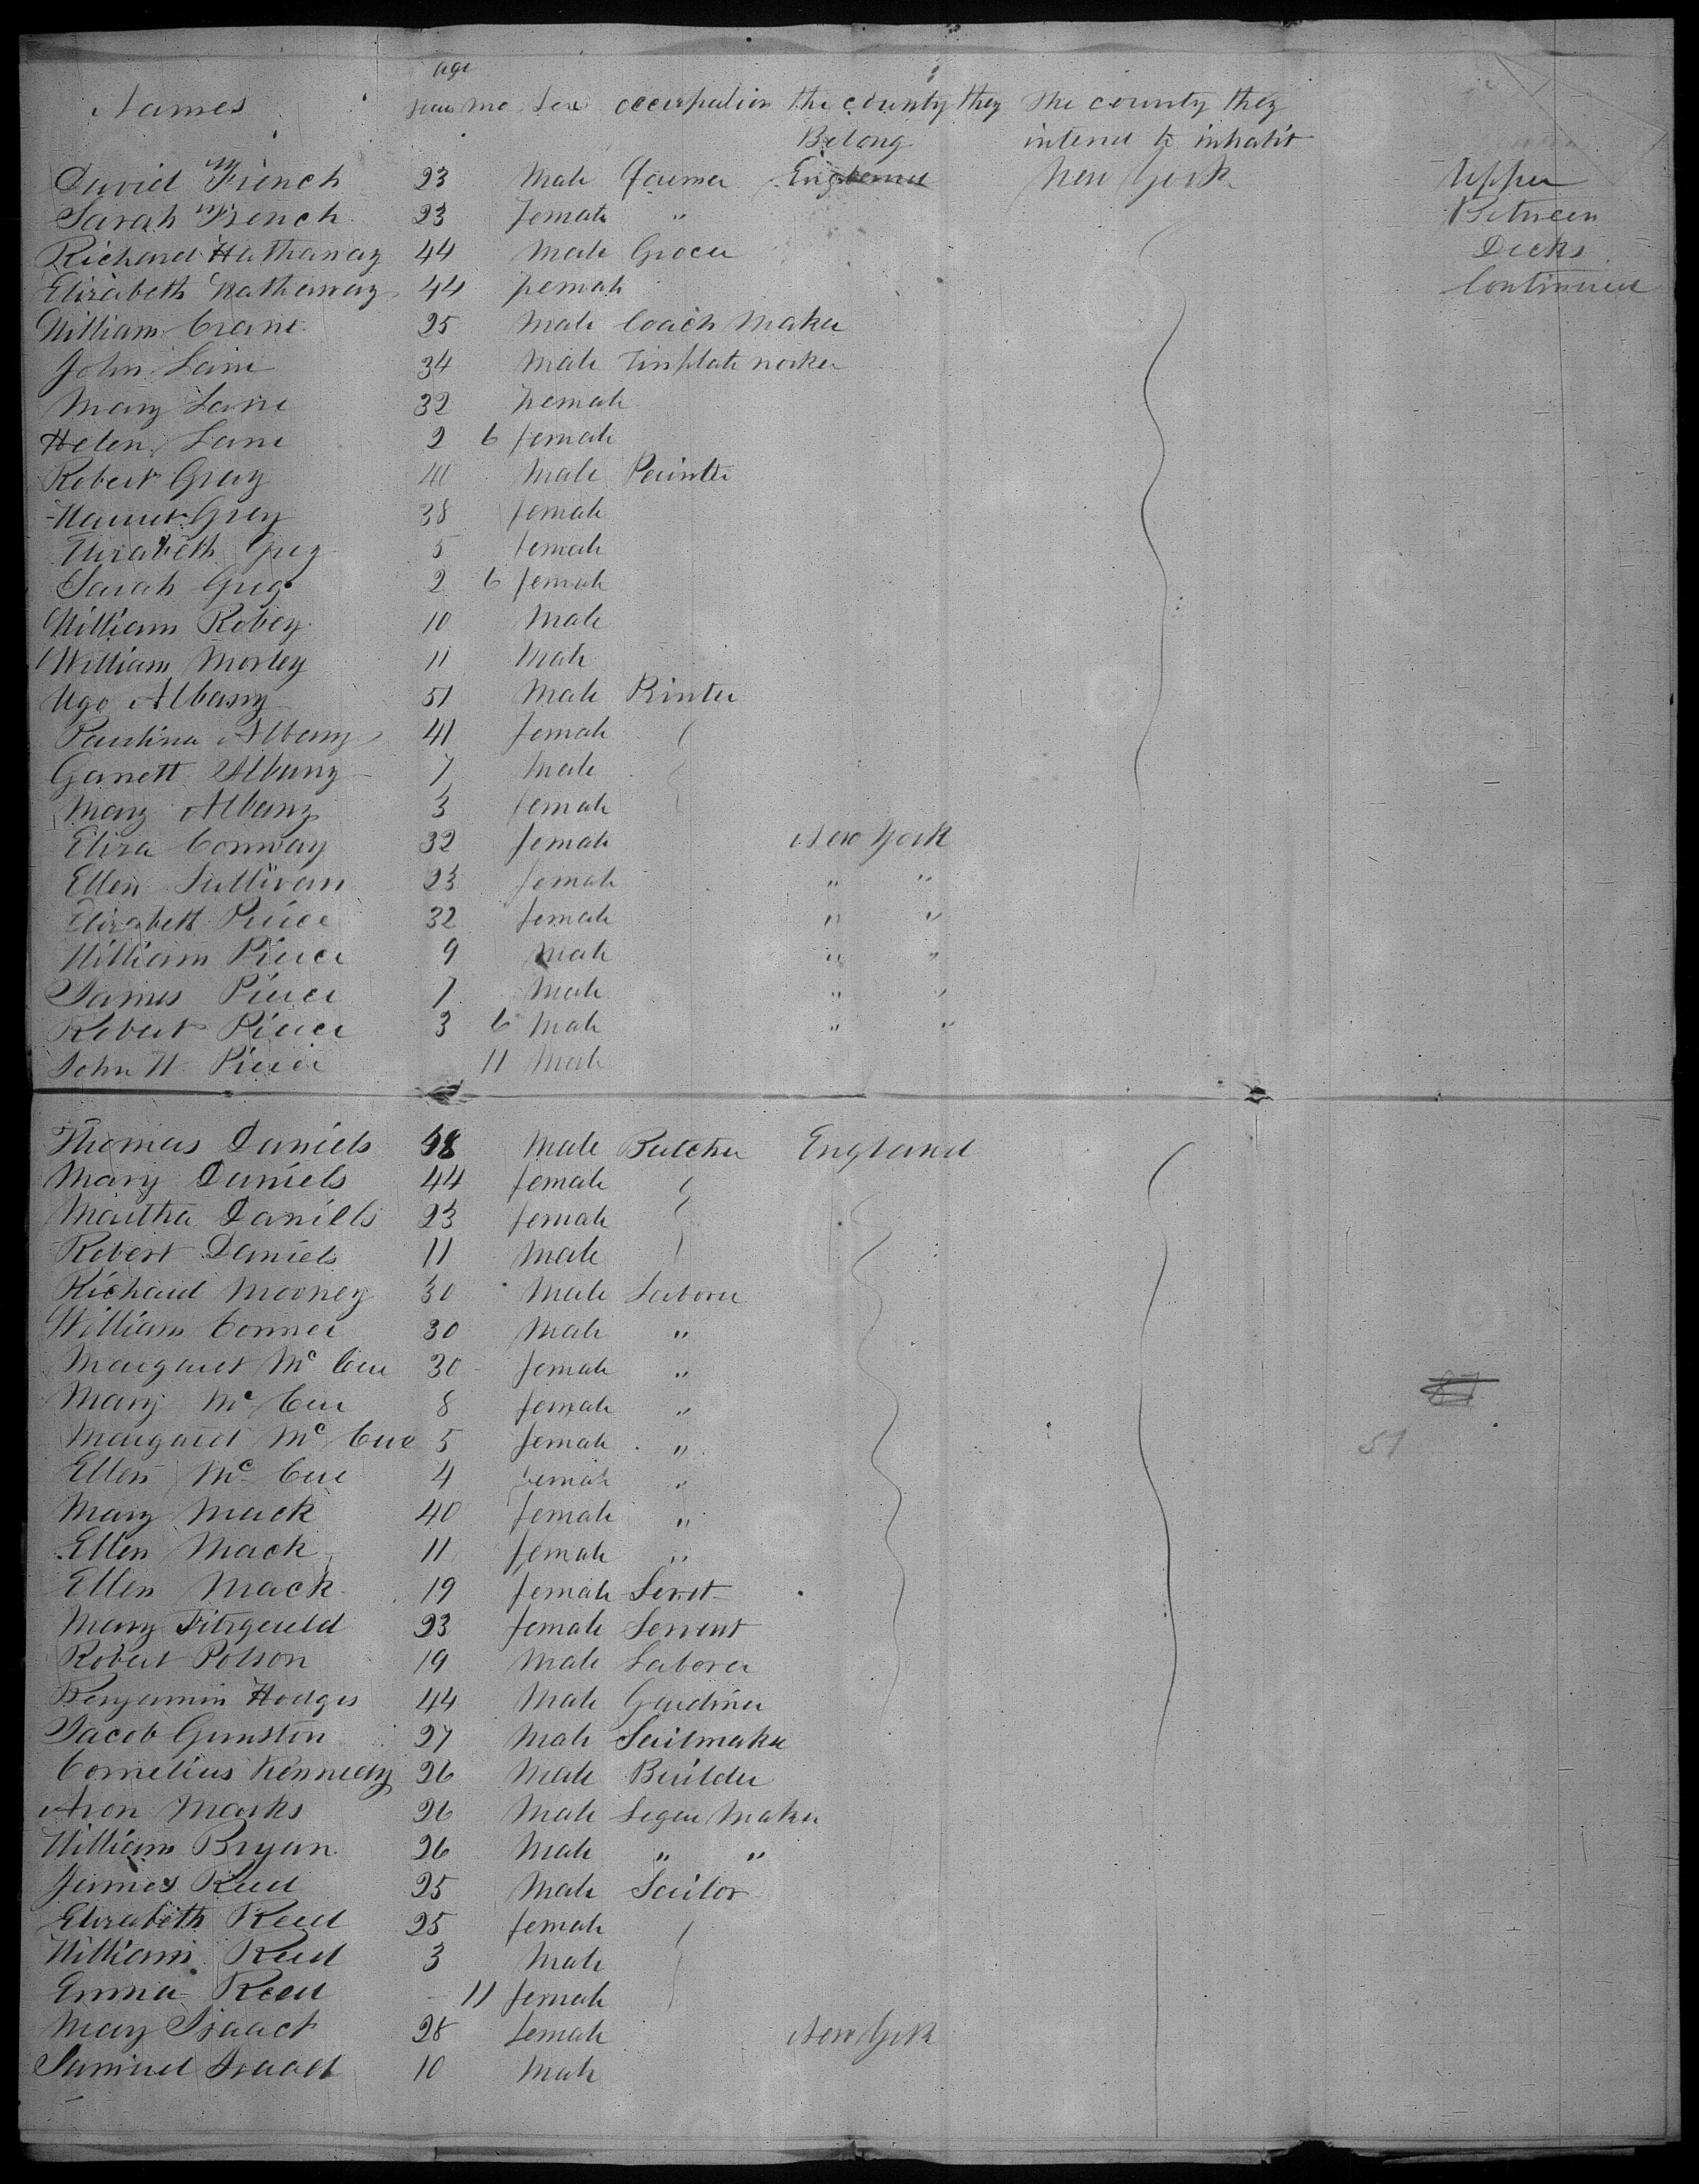 age
Names years mo Sex occupation the county they the county they
Belong intend to inhabit
David French 23 Male farmer England New York Upper
Sarah French 23 female " Between
Richard Hathaway 44 Male Grocer Decks
Elizabeth Hathaway 44 female Continued
William Crane 25 Male Coach Maker
John Lane 34 Male Tinplate worker
Mary Lane 32 female
Helen Lane 2 6 female
Robert Grey 41 Male Painter
Grey 38 female
Elizabeth Grey 5 female
Sarah Grey 2 6 female
William Robey 10 Male
William Morley 11 Male
Ugo Albany 51 Male Printer
Paulina Albany 41 female
Garrett Albany 7 Male
Mary Albany 3 female
Eliza Conway 32 female New York
Ellen Sullivan 23 female " "
Elizabeth Pierce 32 female " "
William Pierce 9 Male " "
James Pierce 7 Male " "
Robert Pierce 3 6 Male " "
John W Pierce 11 Male
Thomas Daniels 48 Male Butcher England
Mary Daniels 44 female
Martha Daniells 23 female
Robert Daniels 11 Male
Richard Mooney 30 Male Laborer
William Conner 30 Male "
Margaret Mc Cue 30 female "
Mary Mc Cue 8 female "
Margaret Mc Cue 5 female " 51
Ellen Mc Cue 4 female "
Mary Mack 40 female "
Ellen Mack 11 female "
Ellen Mack 19 female Servt
Mary Fitzgerald 23 female Servent
Robert Polson 19 Male Laborer
Benjamin Hodges 44 Male Gardiner
Jacob Gunston 27 Male Sailmaker
Cornelius Kennedy 26 Male Builder
Aron Marks 26 Male Segar Maker
William Bryan 26 Male " "
James Reed 25 Male Sailor
Elizabeth Reed 25 female
William Reed 3 Male
Emma Reed 11 female
Mary Isaact 28 female New York
Samuel Isaact 10 Male